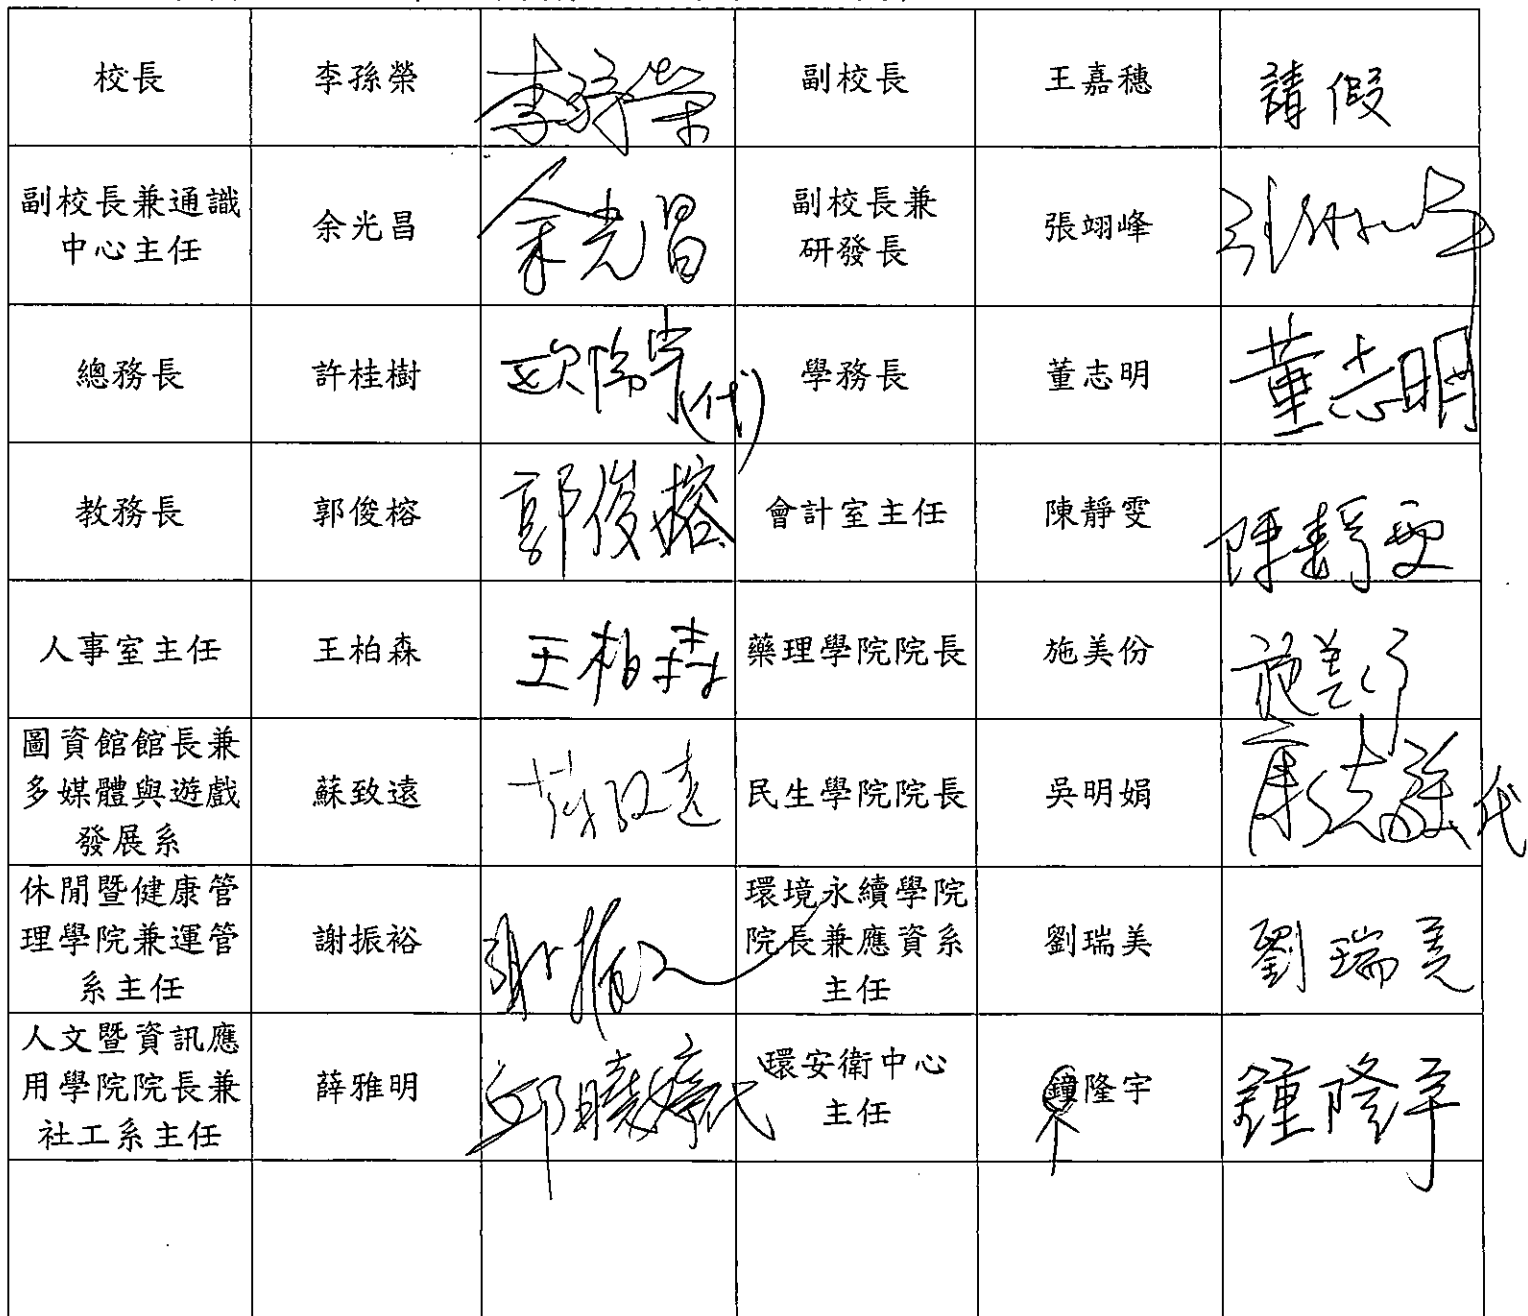 校長 李孫榮 李孫榮 副校長 王嘉穗 請假
副校長兼通識
中心主任 余光昌 余光昌 副校長兼
研發長 張翊峰
總務長 許桂樹 (代) 學務長 董志明 董志明
教務長 郭俊榕 郭俊榕 會計室主任 陳靜雯 陳靜雯
人事室主任 王柏森 王柏森 藥理學院院長 施美份 施美份
圖資館館長兼
多媒體與遊戲
發展系 蘇致遠 蘇致遠 民生學院院長 吳明娟 代
休閒暨健康管
理學院兼運管
系主任 謝振裕 環境永續學院
院長兼應資系
主任 劉瑞美 劉瑞美
人文暨資訊應
用學院院長兼
社工系主任 薛雅明 邱曉婷代 環安衛中心
主任 鐘隆宇 鍾隆宇